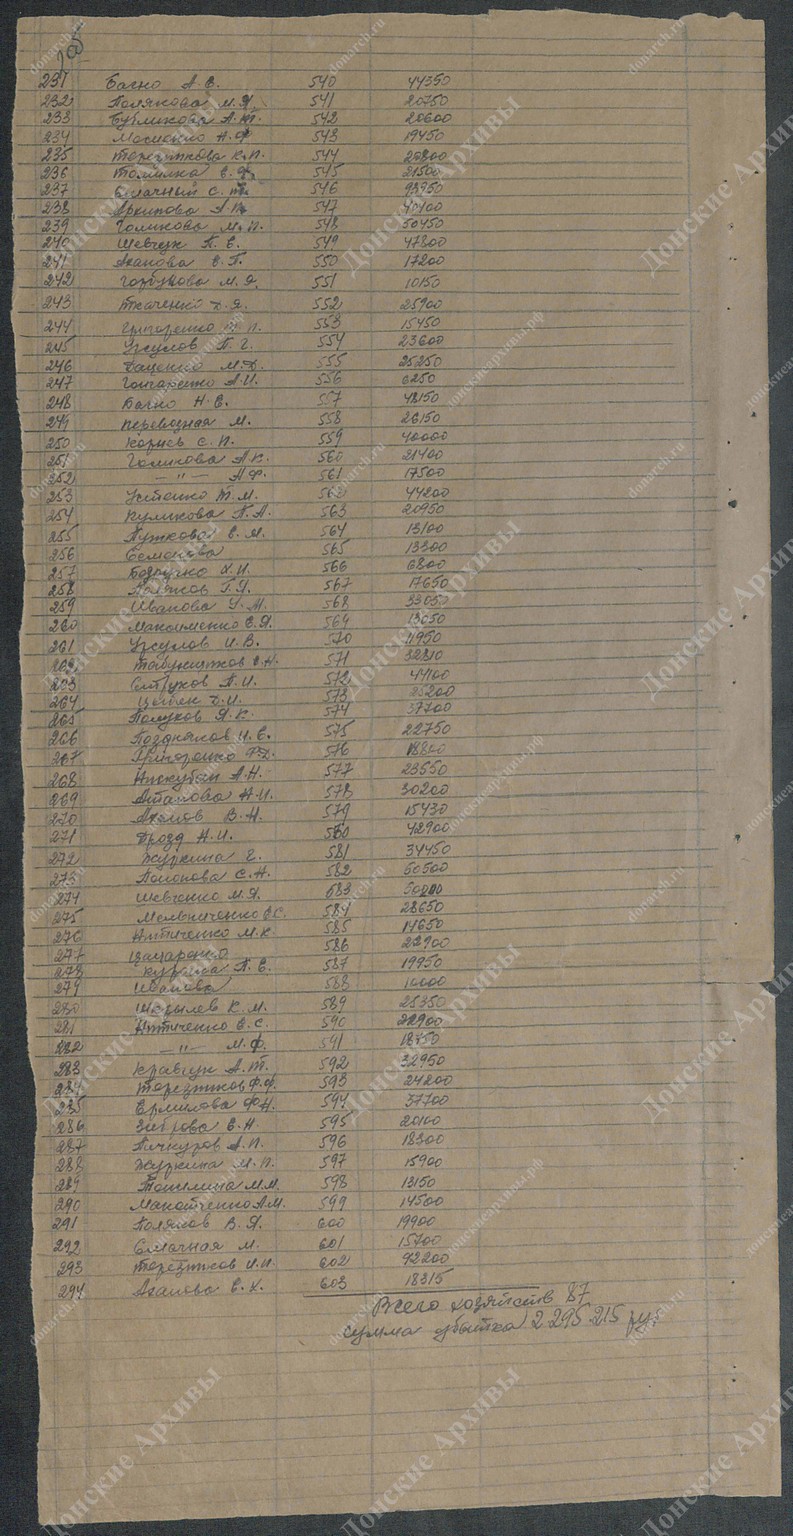 231 Багно А.Е. 540 44350
232 Полякова М.Я. 541 20750
233 Бубликова А.Т. 542 20600
234 Мосиенко А.Ф 543 19450
235 Терезникова К.П. 544
236 Томилка Е.Ф. 545 21500
237 Смачный С.Т. 546
238 Архипова А.П. 547
239 Голикова М.П. 548 50450
240 Шевчук П.Е. 549 47800
241 Аханова Е.Г. 550 17200
242 Горбунова М.Я. 551 10150
243 Ткаченко Д.Я. 552 25900
244 Григоренко Т.П. 553 15450
245 Урсулов П.Г. 554 23600
246 Даценко М.Д. 555 25250
247 Гончаренко А.И. 556 6250
248 Багно Н.Е. 557 48150
249 Перевозная М. 558 26150
250 Корнев С.П. 559 40000
251 Голикова А.К. 560 21400
252 —"— А.Ф. 561 17500
253 Устенко Т.М. 562 44200
254 Куликова П.А. 563 20950
255 Пужкова Е.М. 564 13100
256 Семенова 565 13300
257 Безручко Х.И. 566 6800
258 Поляков Г.Я. 567 17650
259 Иванова У.М. 568 33050
260 Максименко Е.Я. 569 13050
261 Урсулов И.В. 570 11950
262 571
263 Сотруков П.И. 572
264 573 25200
265 Полуков Я.К. 574 37700
266 Поздняков И.Е. 575 22750
267 Григоренко Ф.Д. 576 18800
268 577 23550
269 578 30200
270 Акимов В.Н. 579 15430
271 Дрозд Н.И. 580 42900
272 Журкина Е. 581 34450
273 Попонова С.Н. 582 50500
274 Шевченко М.Я. 583
275 Мельниченко 584 28650
276 Нитиченко М.К 585 14650
277 586 22900
278 П.Е. 587 19950
279 Иванова 588 10000
280 К.М. 589 25350
281 Нитиченко Е.С. 590 22900
282 —"— М.Ф. 591 18750
283 Кравчук А.Т. 592 32950
284 Терезников Ф.Ф. 593 24200
285 Ермилова Ф.Н. 594 37700
286 Зиброва Е.Н 595 20100
287 Пичкуров А.П. 596 18300
288 Журкина М.П. 597 15900
289 Томилина М.М. 598 13150
290 А.М. 599 14500
291 Поляков В.Я. 600 19900
292 Смачная М. 601 15700
293 Терезников И.И. 602 42200
294 Аханова Е.Х. 603 18315
Всего хозяйств 87
сумма убытка 2 295 215 руб
донские архивы
donarch.ru
донскиеархивы.рф